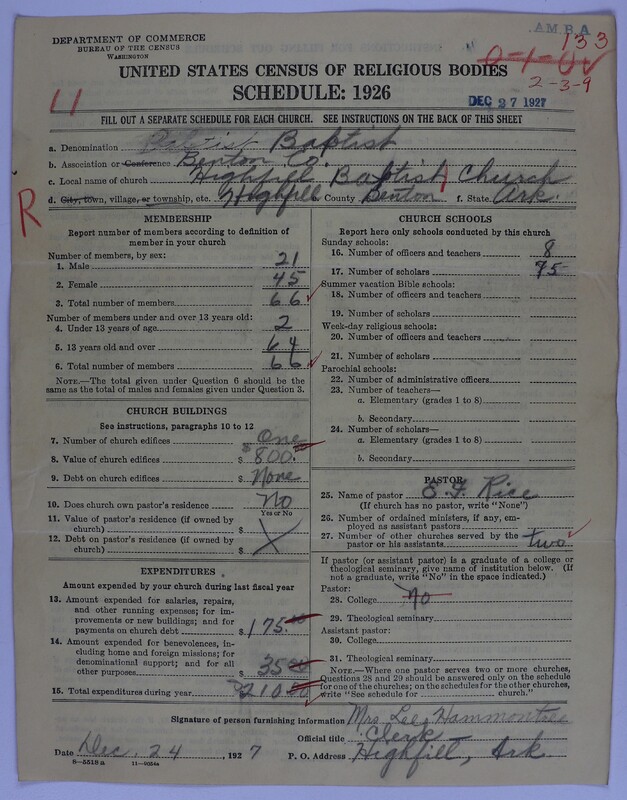 AMBA
DEPARTMENT OF COMMERCE
BUREAU OF THE CENSUS
WASHINGTON
133
0-1-00
2-3-9
UNITED STATES CENSUS OF RELIGIOUS BODIES
SCHEDULE: 1926
DEC 27 1927
FILL OUT A SEPARATE SCHEDULE FOR EACH CHURCH. SEE INSTRUCTIONS ON THE BACK OF THIS SHEET
a. Denomination Baptist Baptist
b. Association or Conference Benton Co.
c. Local name of church Highfill Baptist Church
d. City, town, village, or township, etc. Highfill e. County Benton f. State Ark.
R
MEMBERSHIP
Report number of members according to definition of
member in your church
Number of members, by sex:
1. Male 21
2. Female 45
3. Total number of members 66
Number of members under and over 13 years old:
4. Under 13 years of age 2
5. 13 years old and over 64
6. Total number of members 66
NOTE.—The total given under Question 6 should be the
same as the total of males and females given under Question 3.
CHURCH BUILDINGS
See instructions, paragraphs 10 to 12
7. Number of church edifices One
8. Value of church edifices $ $800.
9. Debt on church edifices $ None
10. Does church own pastor's residence No
Yes or No
11. Value of pastor's residence (if owned by
church) $
12. Debt on pastor's residence (if owned by
church) $ X
EXPENDITURES
Amount expended by your church during last fiscal year
13. Amount expended for salaries, repairs,
and other running expenses; for im-
provements or new buildings; and for
payments on church debt $ 175.00
14. Amount expended for benevolences, in-
cluding home and foreign missions; for
denominational support; and for all
other purposes 35.00
15. Total expenditures during year $210.00
CHURCH SCHOOLS
Report here only schools conducted by this church
Sunday schools:
16. Number of officers and teachers 8
17. Number of scholars 75
Summer vacation Bible schools:
18. Number of officers and teachers
19. Number of scholars
Week-day religious schools:
20. Number of officers and teachers
21. Number of scholars
Parochial schools:
22. Number of administrative officers
23. Number of teachers—
a. Elementary (grades 1 to 8)
b. Secondary
24. Number of scholars—
a. Elementary (grades 1 to 8)
b. Secondary
PASTOR
25. Name of pastor E. F. Rice
(If church has no pastor, write "None")
26. Number of ordained ministers, if any, em-
ployed as assistant pastors
27. Number of other churches served by the
pastor or his assistants two
If pastor (or assistant pastor) is a graduate of a college or
theological seminary, give name of institution below. (If
not a graduate, write "No" in the space indicated.)
Pastor:
28. College No
29. Theological seminary
Assistant pastor:
30. College
31. Theological seminary
NOTE.—Where one pastor serves two or more churches,
Questions 28 and 29 should be answered only on the schedule
for one of the churches; on the schedules for the other churches,
write "See schedule for church."
Signature of person furnishing information Mrs. Lee Hammontree
Official title Clerk
Date Dec. 24, 1927 P. O. Address Highfill, Ark.
8—5518 a 11—9054a